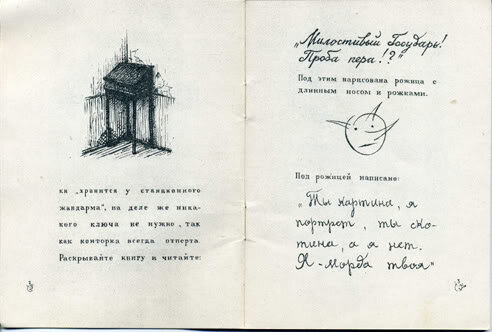 ка „хранится у станционного
жандарма", на деле же ника-
кого ключа не нужно, так
как конторка всегда отперта.
Раскрывайте книгу и читайте:
„Милостивый Государь!
Проба пера!?"
Под этим нарисована рожица с
длинным носом и рожками.
Под рожицей написано:
„Ты картина, я
портрет, ты ско-
тина, а я нет.
Я - морда твоя"